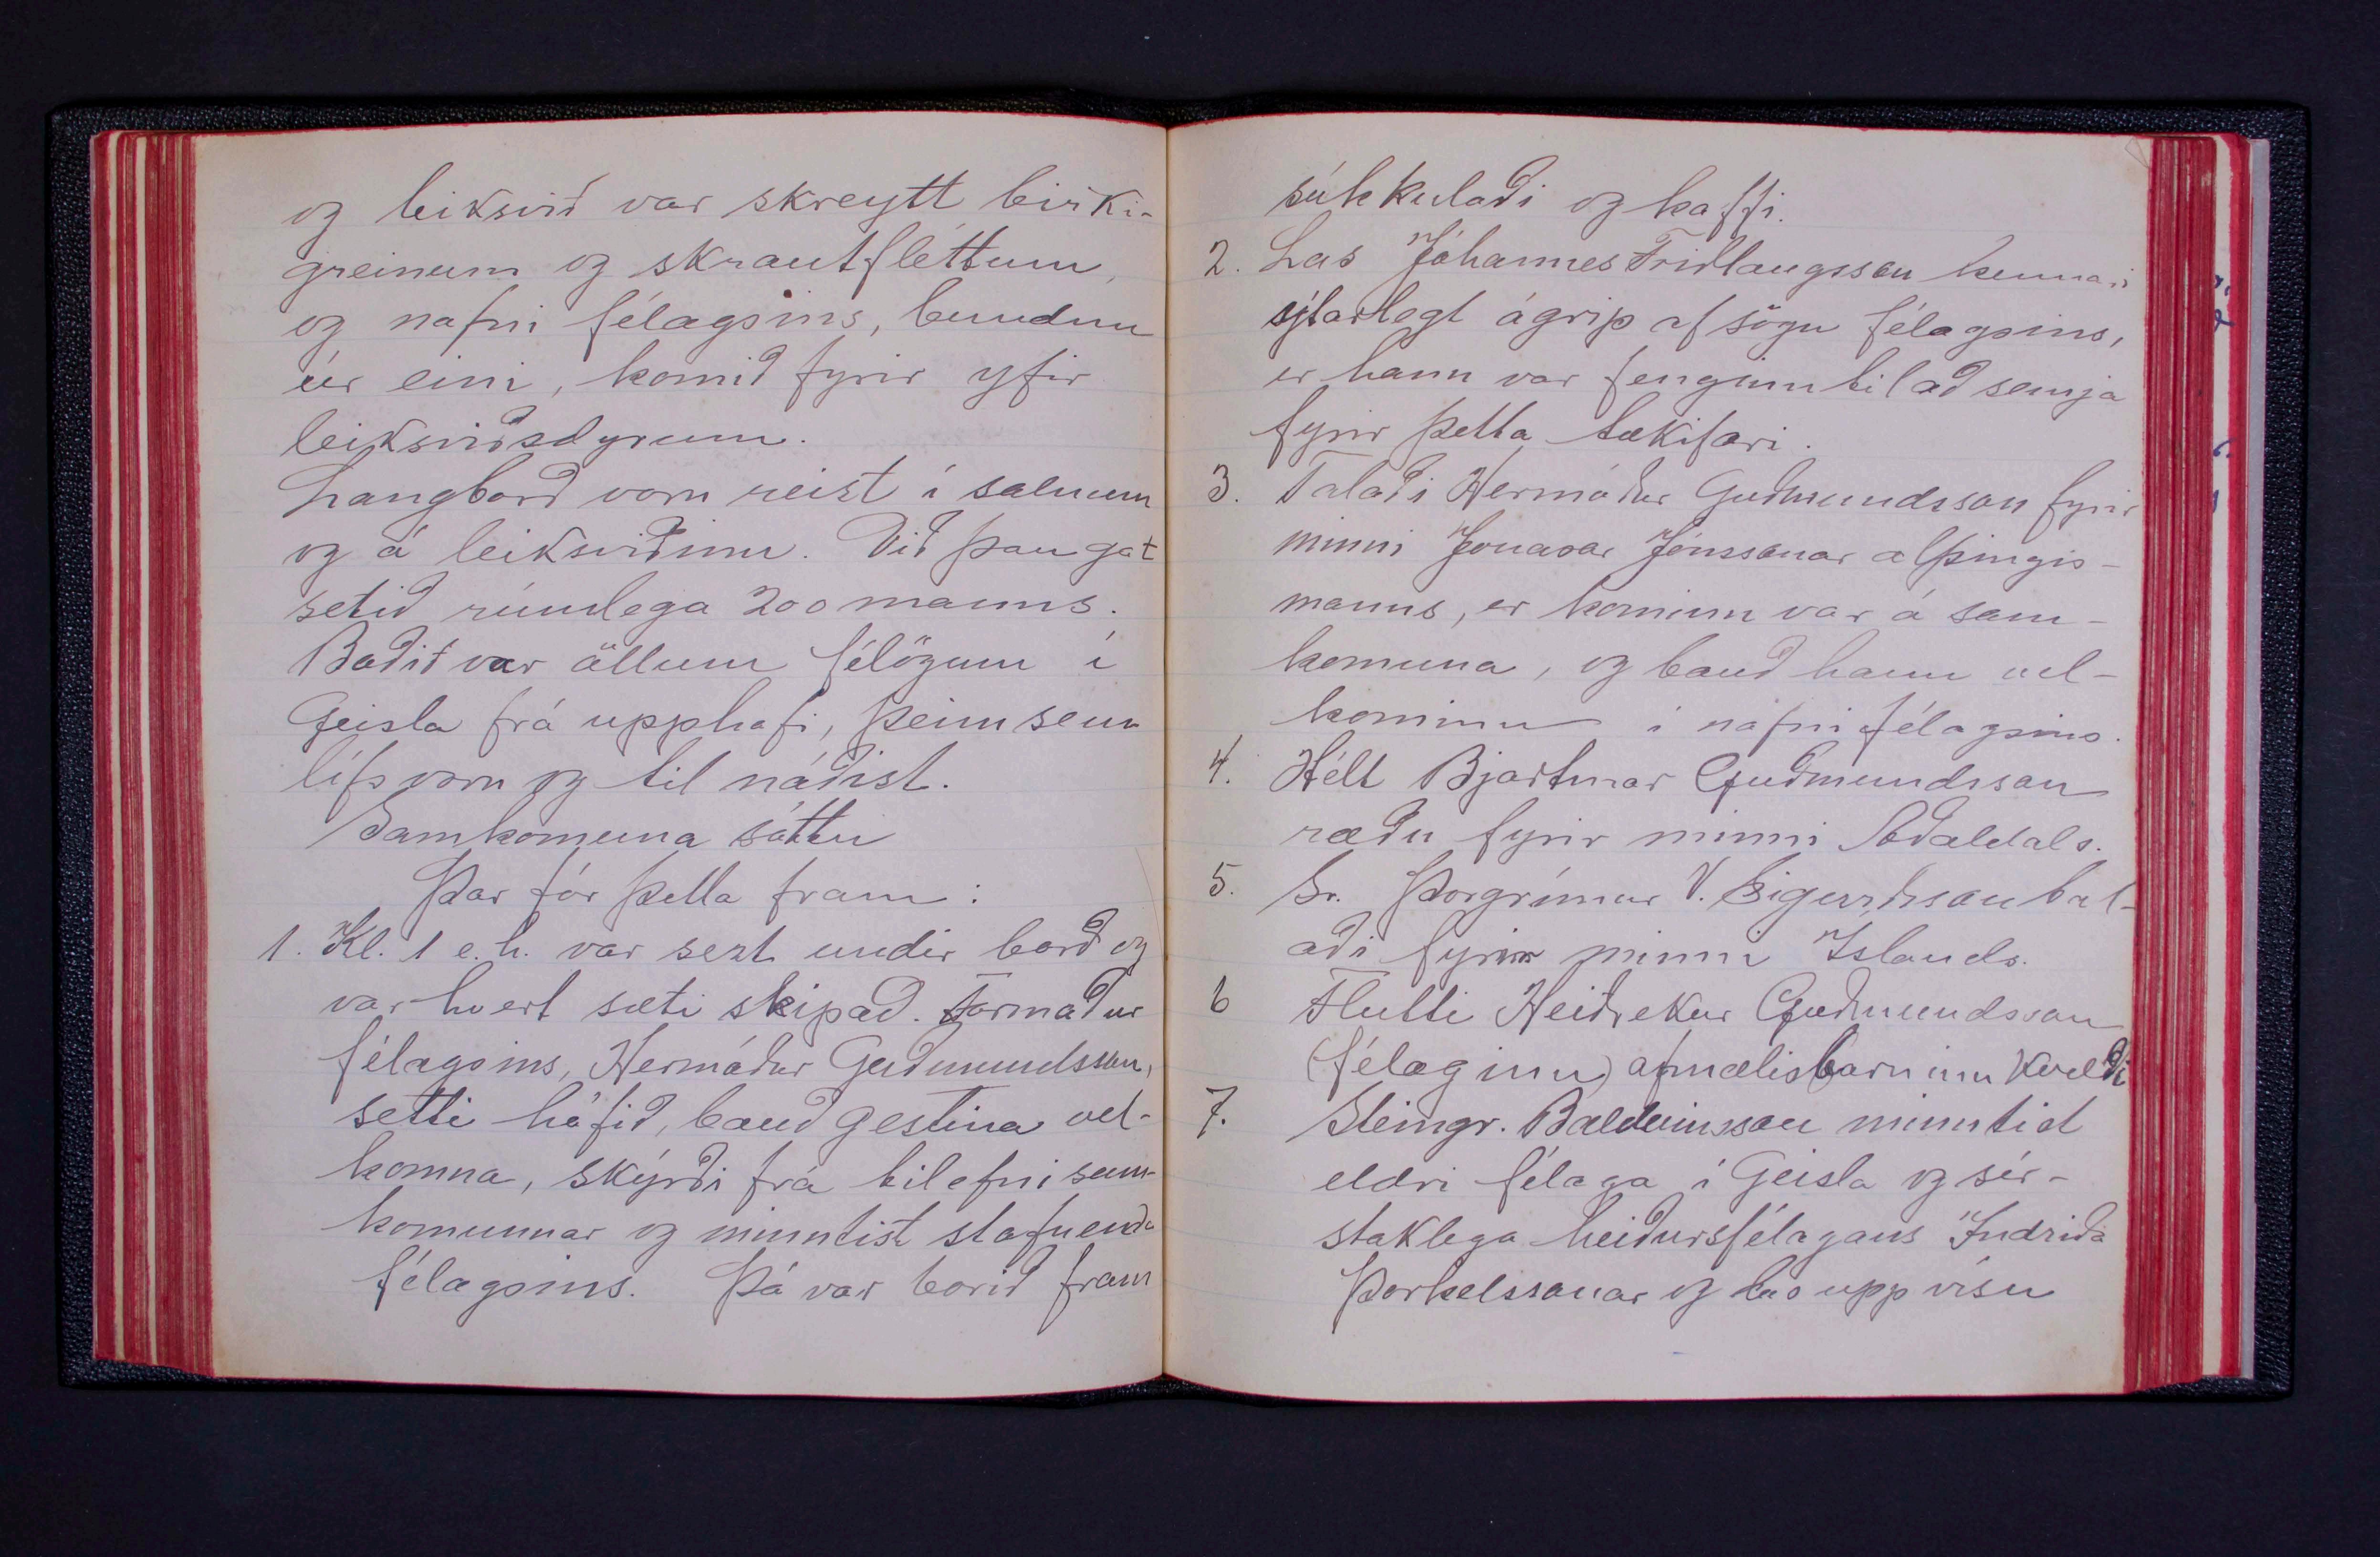 og leiksvið var skreytt birki-
greinum og skrautfléttum,
og nafni félagsins, bundnu
úr eini, komið fyrir yfir
leiksviðsdyrum.
Langborð voru reist í salnum
og á leiksviðinu. Við þau gat
setið rúmlega 200 manns.
Boðið var öllum félögum í
Geisla frá upphafi, þeim sem
lífs voru og til náðist.
Samkomuna sóttu
Þar fór þetta fram:
1. Kl. 1 e.h. var sezt undir borð og
var hvert sæti skipað. Formaður
félagsins, Hermóður Guðmundsson,
setti hófið, bauð gestina vel-
komna, skýrði frá tilefni sam-
komunnar og minntist stofnenda
félagsins. Þá var borið fram
súkkulaði og kaffi.
2. Las Jóhannes Friðlaugsson kennari
ýtarlegt ágrip af sögu félagsins,
er hann var fenginn til að semja
fyrir þetta tækifæri.
3. Talaði Hermóður Guðmundsson fyrir
minni Jónasar Jónssonar alþingis-
manns, er kominn var á sam-
komuna, og bauð hann vel-
kominn í nafni félagsins.
4. Hélt Bjartmar Guðmundsson
ræðu fyrir minni Aðaldals.
5. Sr. Þorgrímur V. Sigurðsson tal-
aði fyrir minni Íslands.
6 Flutti Heiðrekur Guðmundsson
(félaginu) afmælisbarninu kvæði
7. Steingr. Baldvinsson minntist
eldri félaga í Geisla og sér-
staklega heiðursfélagans Indriða
Þorkelssonar og las upp vísu